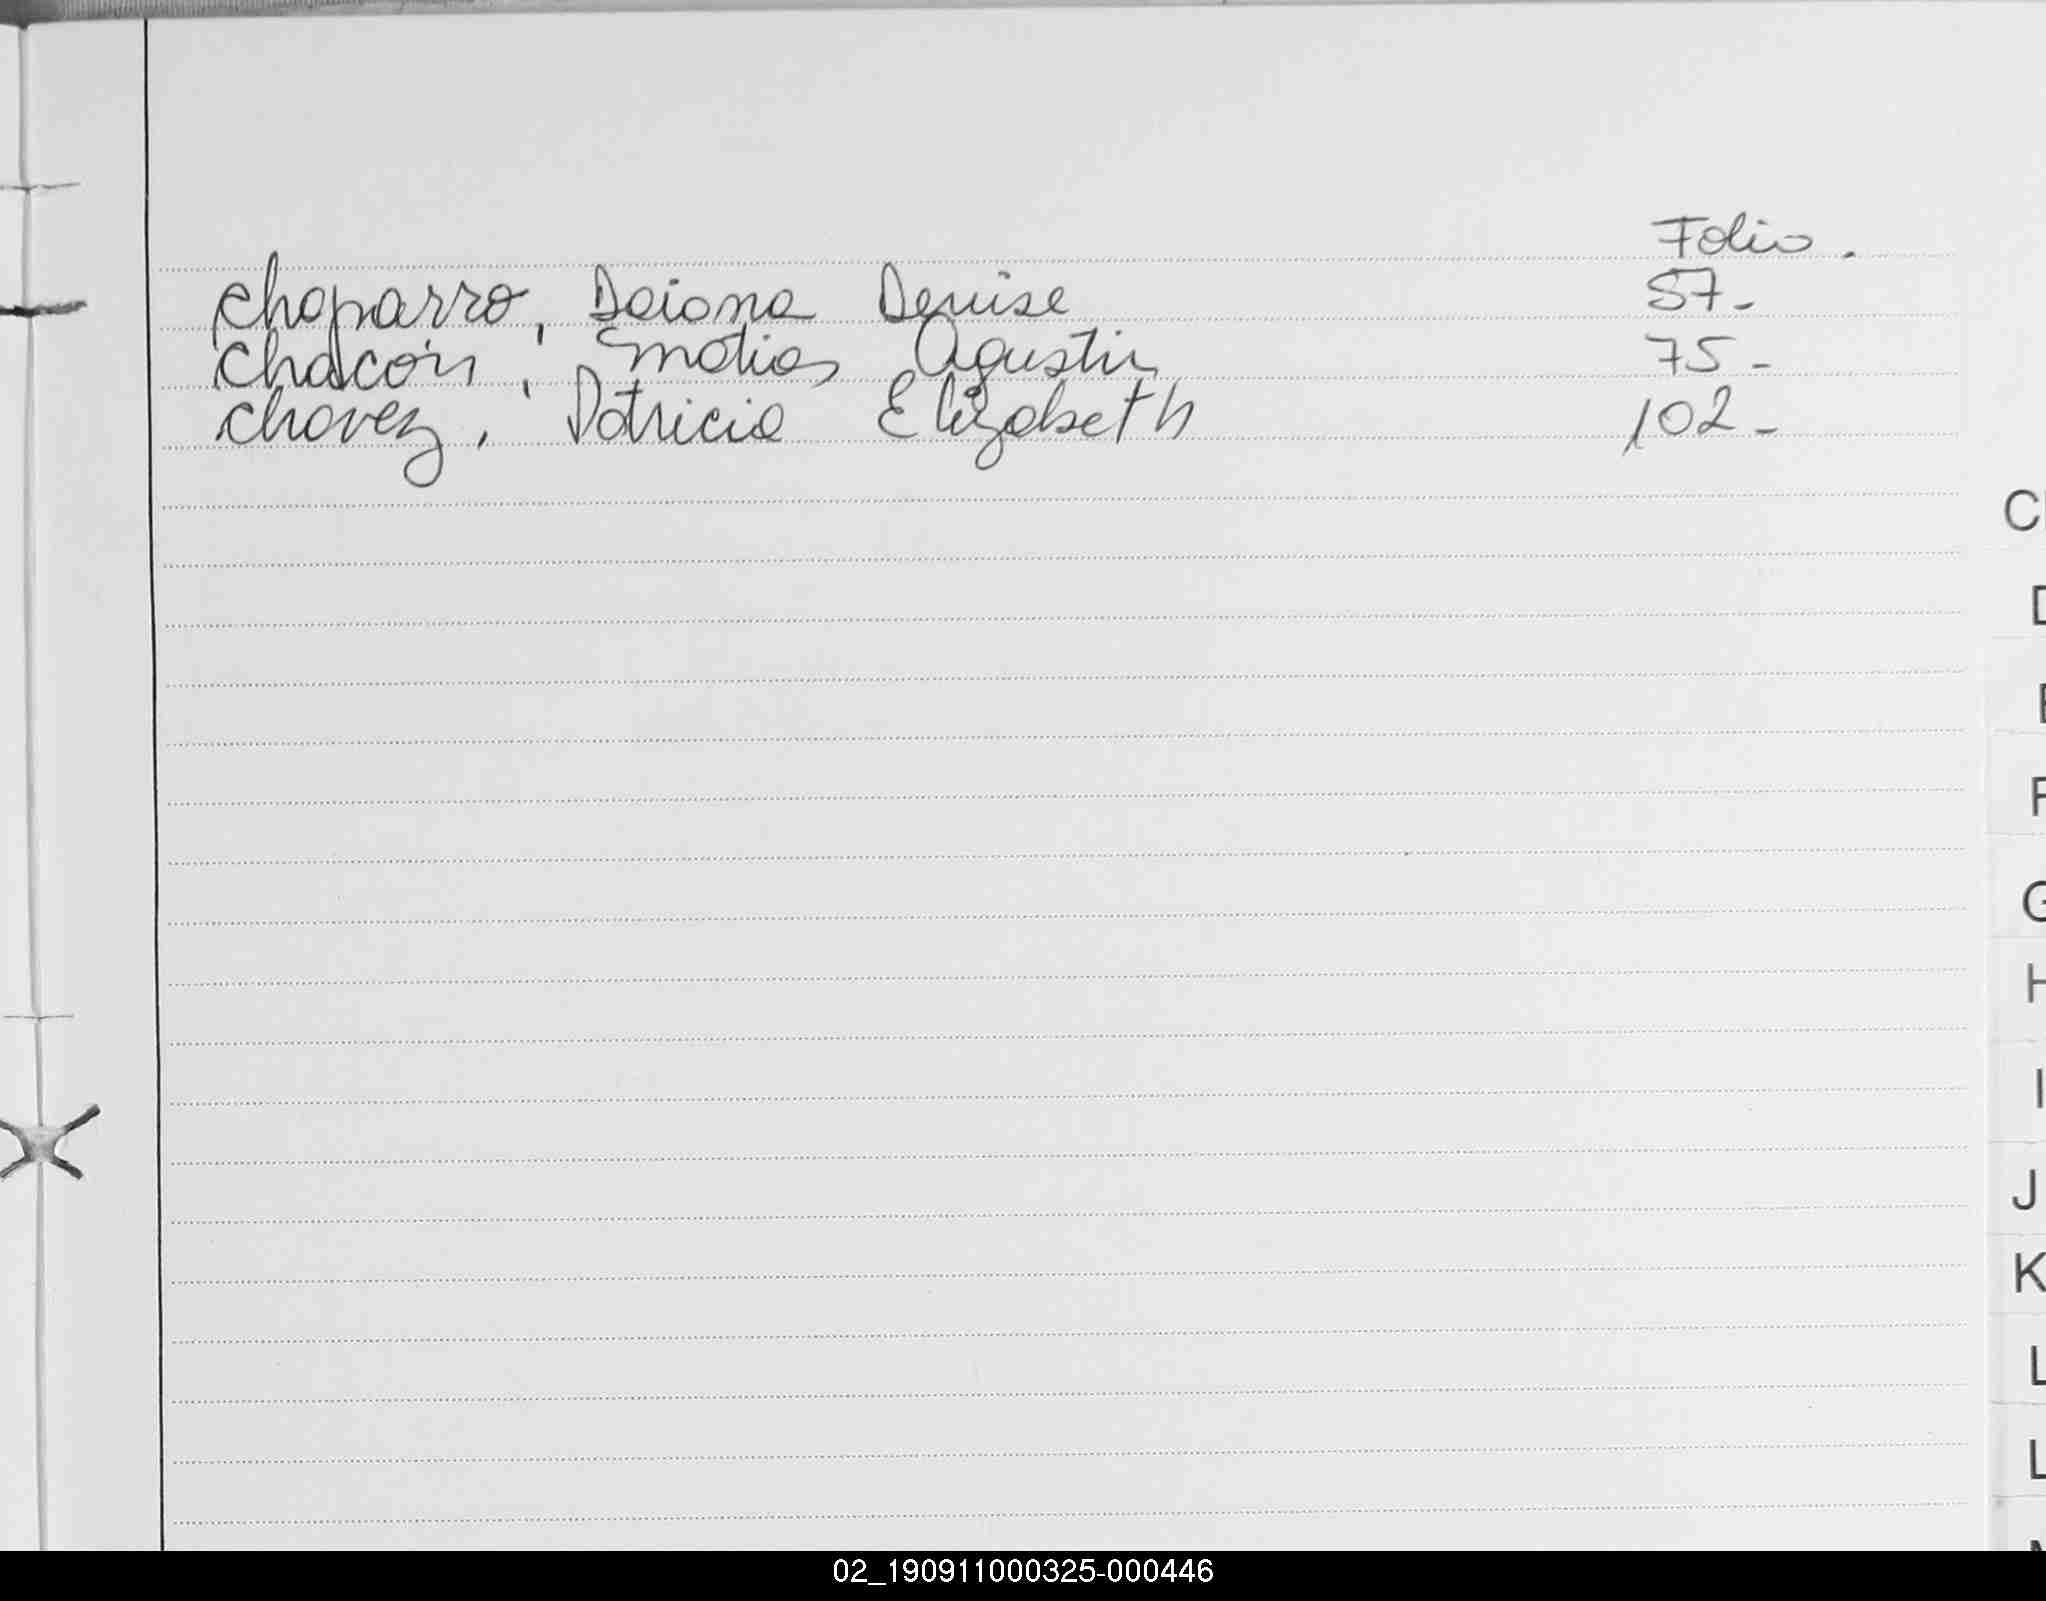 Folio.
Chaparro, Daiana Denise 57-
Chacón, Matias Agustin 75-
Chavez, Patricia Elizabeth 102-
C
D
E
F
G
H
I
J
K
L
L
02_190911000325-000446